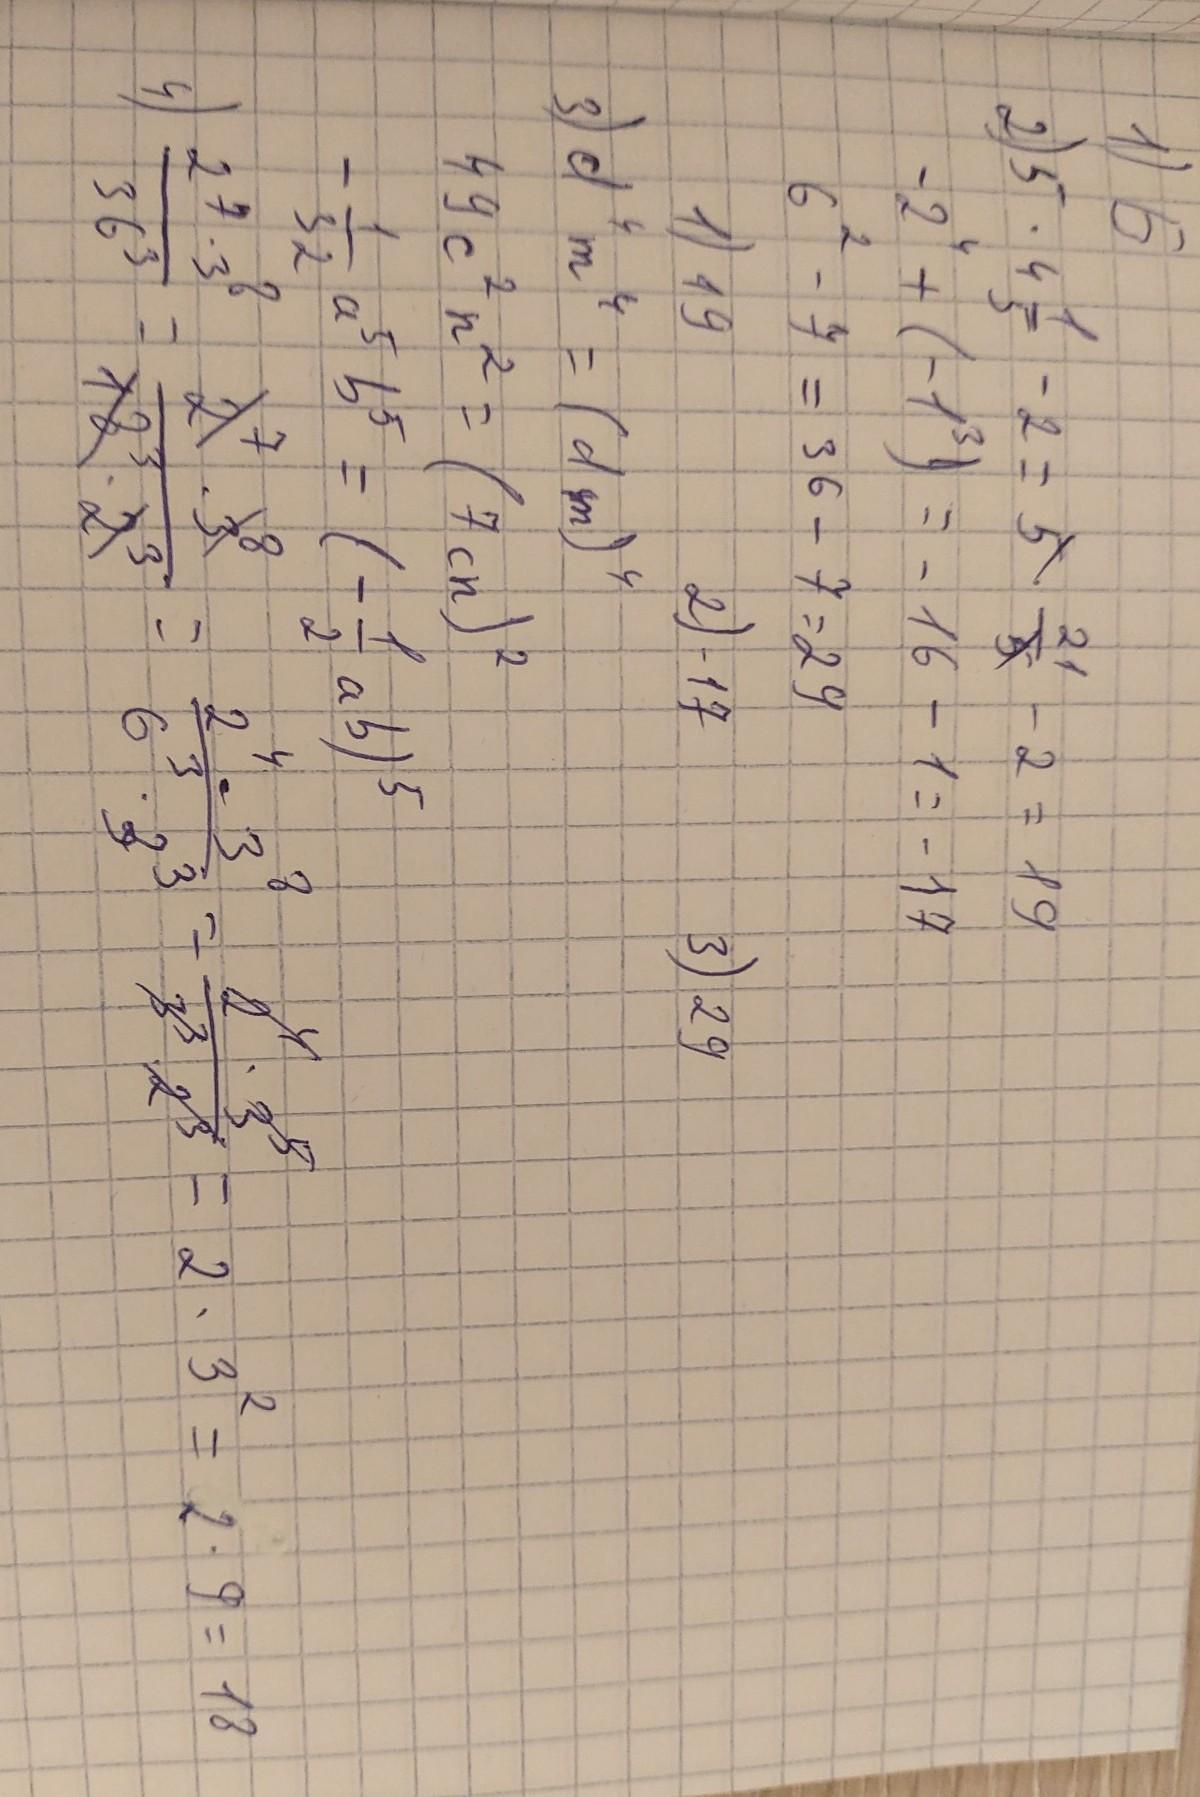 1) б
2) 5 · 4 1/5 - 2 = 5 · 21/5 - 2 = 19
-2⁴ + (-1³) = -16 - 1 = -17
6² - 7 = 36 - 7 = 29
1) 19 2) -17 3) 29
3) d⁴m⁴ = (dm)⁴
49c²n² = (7cn)²
-1/32 a⁵b⁵ = (-1/2 ab)⁵
4) 2⁷·3⁸/36³ = 2⁷·3⁸/18³·2³ = 2⁴·3⁸/6³·3³ = 2⁴·3⁵/3³·2³ = 2·3² = 2·9 = 18